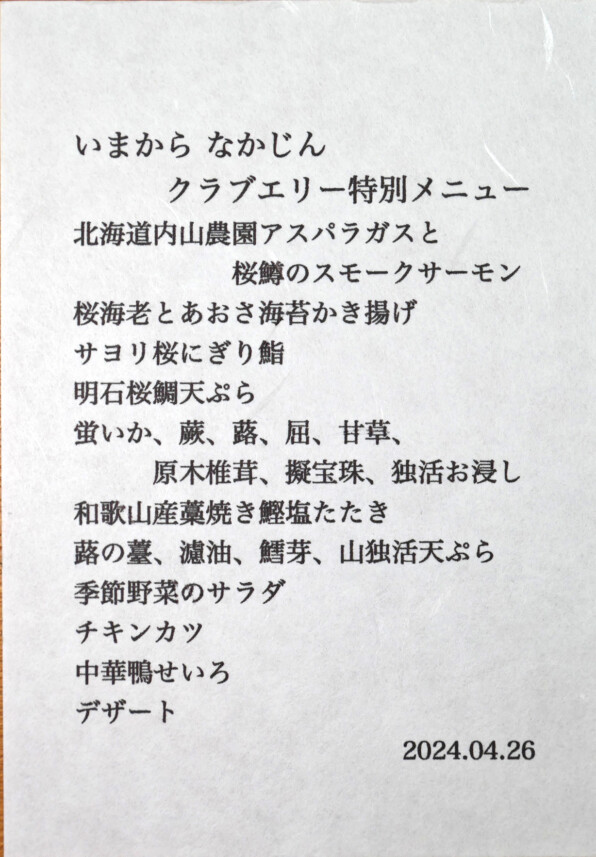 いまから なかじん
クラブエリー特別メニュー
北海道内山農園アスパラガスと
桜鱒のスモークサーモン
桜海老とあおさ海苔かき揚げ
サヨリ桜にぎり鮨
明石桜鯛天ぷら
蛍いか、蕨、蕗、屈、甘草、
原木椎茸、擬宝珠、独活お浸し
和歌山産藁焼き鰹塩たたき
蕗の薹、濾油、鱈芽、山独活天ぷら
季節野菜のサラダ
チキンカツ
中華鴨せいろ
デザート
2024.04.26